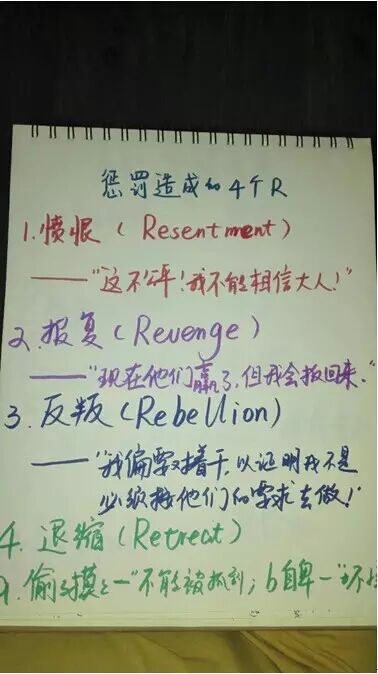 惩罚造成的4个R
1.愤恨(Resentment)
——"这不公平!我不能相信大人!"
2.报复(Revenge)
——"现在他们赢了,但我会扳回来。"
3.反叛(Rebellion)
——"我偏要对着干,以证明我不是
必须按他们的要求去做!"
4.退缩(Retreat)
偷偷摸摸—"不能被抓到;b自卑—"坏